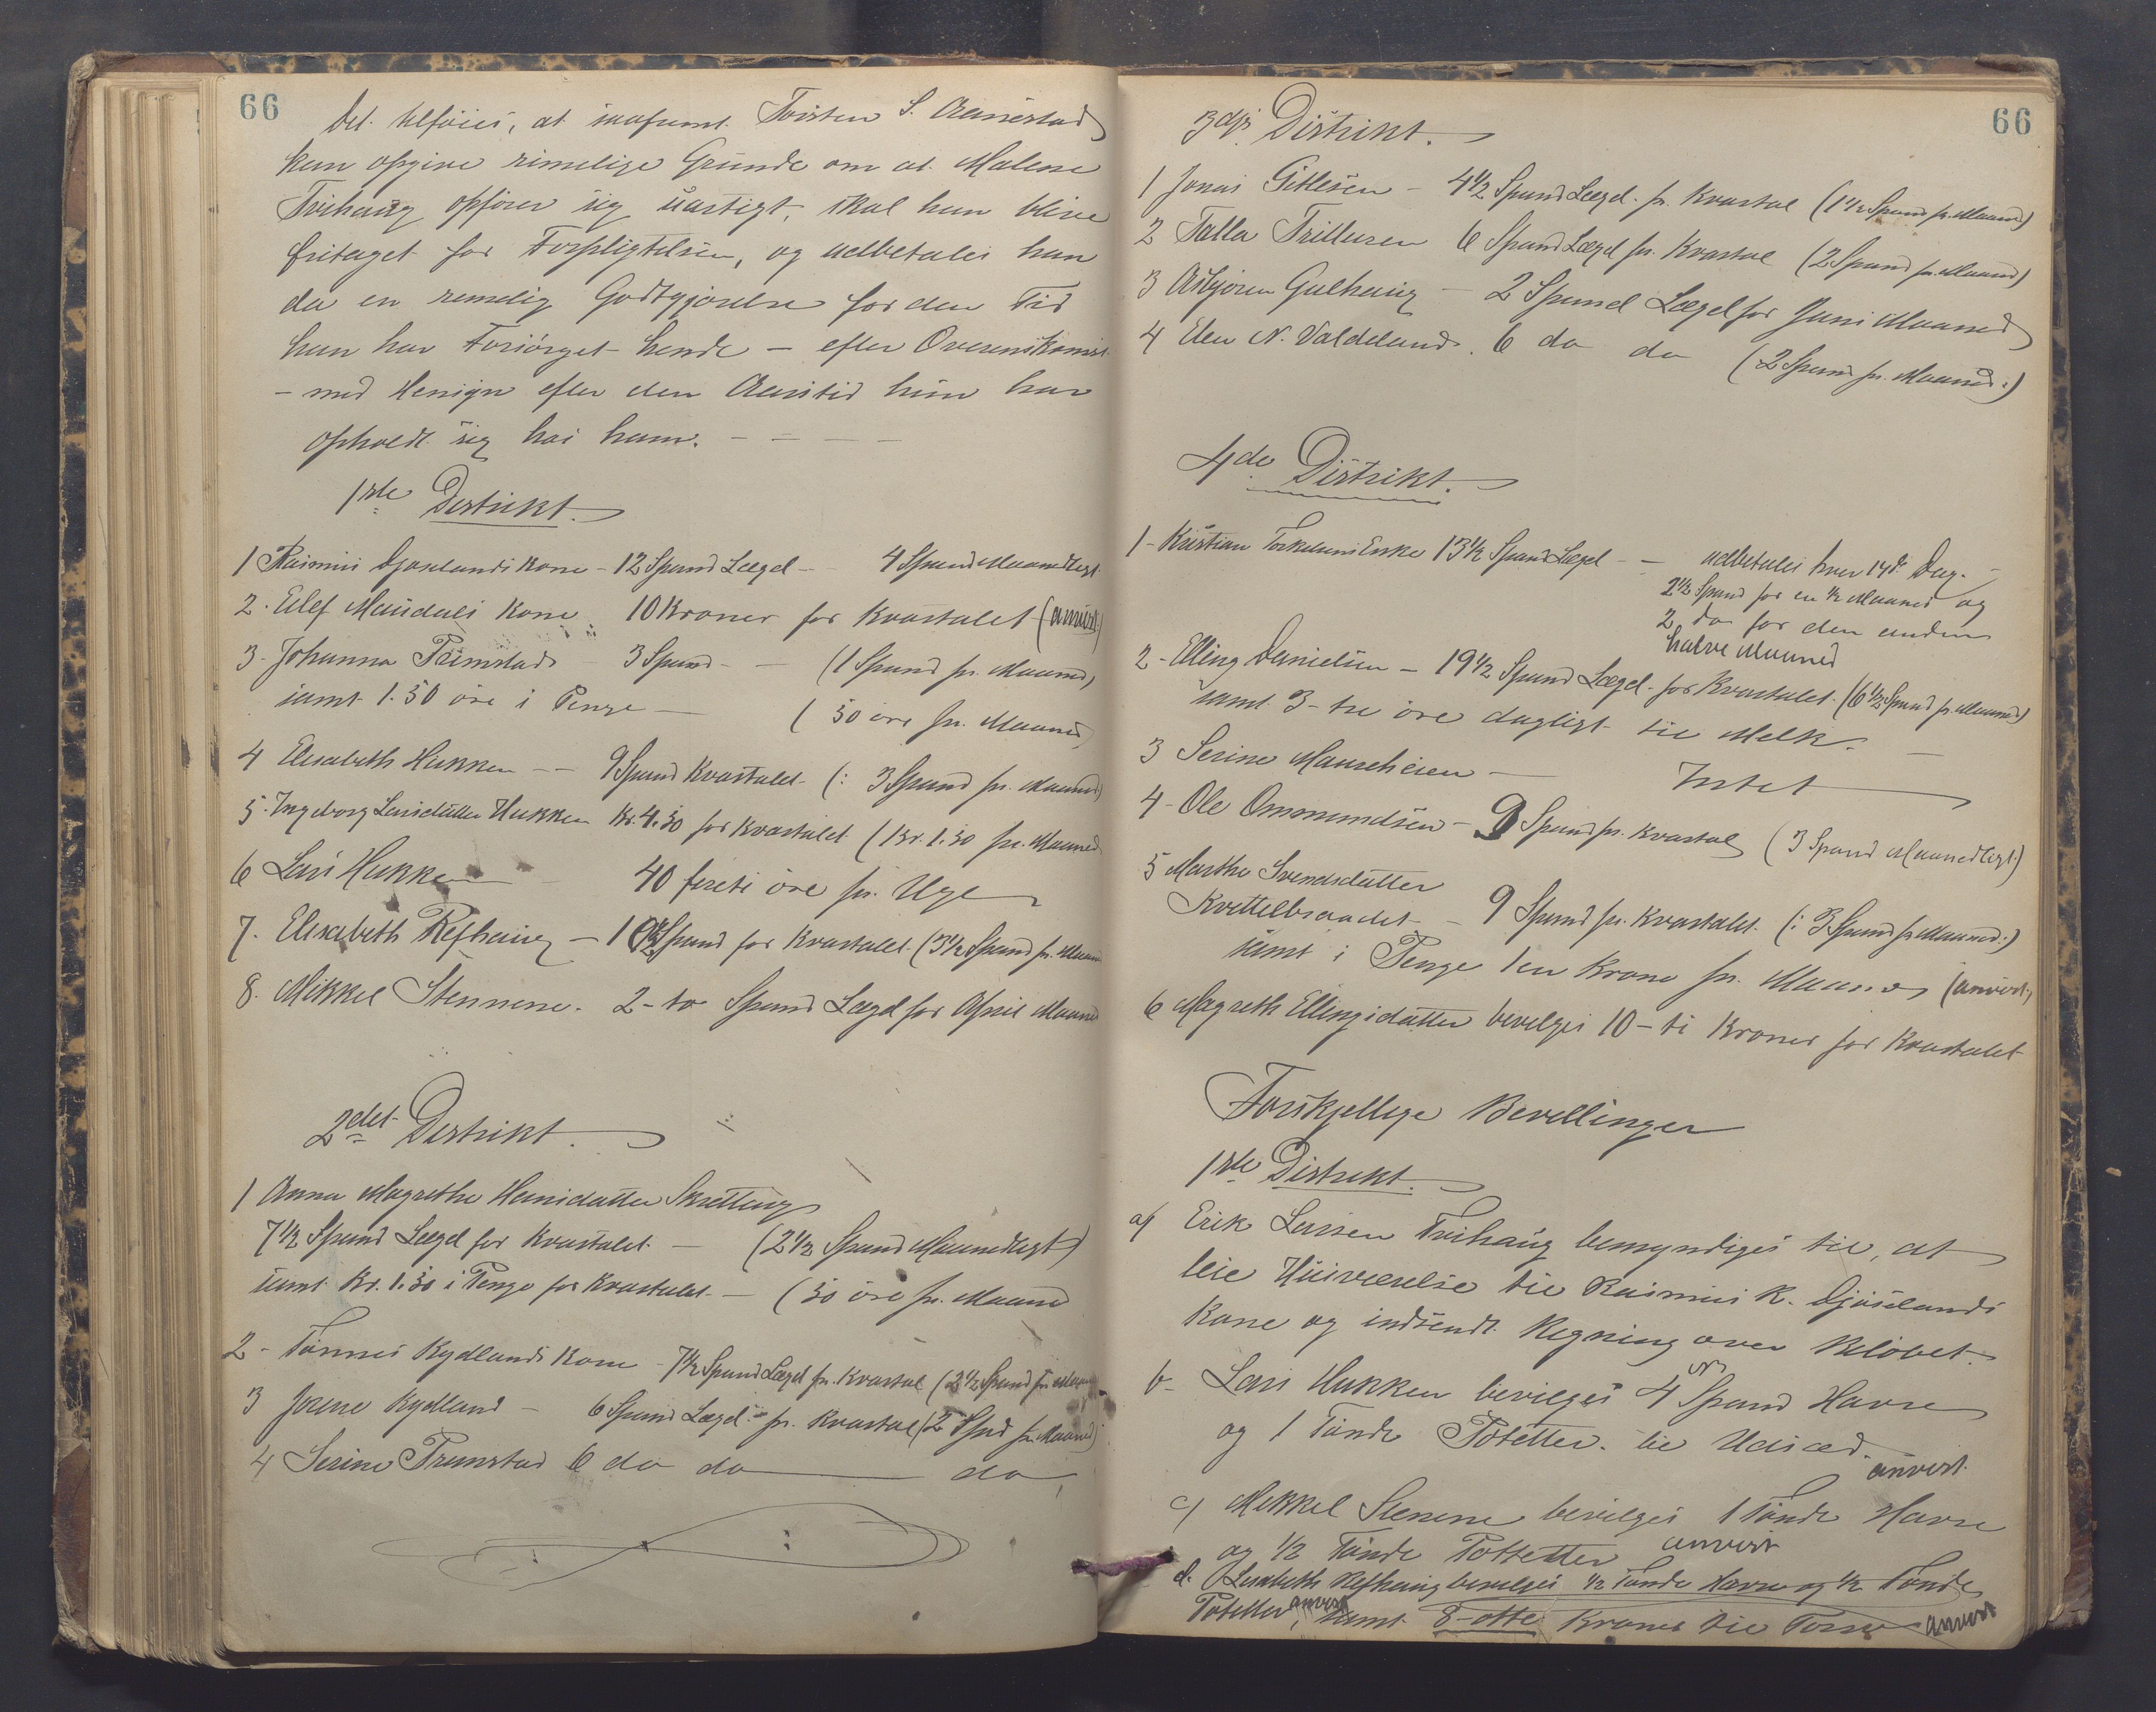 66
Det tilføies, at saafremt Torsten S. Aanestad
kan opgive rimelige Grunde om at Malene
Tvihaug opfører sig usastigt, skal han blive
fritaget for Forpligtelsen, og udbetales han
da en remelig Godtgjørelse for den Tid
han har Forsørget hende – efter Overenskomst
– med Hensyn efter den Aarstid hun har
opholdt sig hos ham. – – – –
1ste Destrikt.
1 Rasmus Gjøslands Kone – 12 Spand Lægd – 4 Spand Maanedligt
2. Elef Maudals Kone 10 Kroner for Kvartalet (anvist)
3. Johanna Primstad – 3 Spand – – (1 Spand pr. Maaned)
samt 1.50 øre i Penge – (50 øre pr. Maaned)
4 Elisabeth Hukken – – 9 Spand Kvartalet (: 3 Spand pr. Maaned)
5. Ingeborg Larsdatter Hukken Kr. 4.50 for Kvartalet (Kr. 1.50 pr. Maaned
6 Lars Hukken 40 føreti øre pr. Uge
7. Elisabeth Refhaug – 10½ Spand for Kvartalet (3½ Spand pr. Maaned
8. Mikkel Stennene. 2 – to Spand Lægd for April Maaned
2det Destrikt.
1 Anna Magrethe Hansdatter Skretting
7½ Spand Lægd for Kvartalet – (2½ Spand Maanedligt)
samt Kr. 1.50 i Penge for Kvartalet – (50 øre pr. Maaned
2 – Tønnes Rydlands Kone – 7½ Spand Lægd pr. Kvartal (2½ Spand pr Maaned
3 Jorene Rydland – 6 Spand Lægd – pr. Kvartal (2 Spd pr. Maaned)
4 Serine Primstad 6 do do do
66
3dje Distrikt.
1 Jonas Gitlesen – 4½ Spand Lægd. pr. Kvartal (1½ Spand pr. Maaned)
2 Talla Trillusen 6 Spand Lægd pr. Kvartal (2 Spand pr. Maaned)
3 Asbjøren Gulhaug – 2 Spand Lægd for Juni Maaned
4 Elen N. Valdeland. 6 do do (2 Spand pr. Maaned:)
4de Distrikt.
1 – Kristian Torkelsens Enke 13½ Spand Lægd – – udbetales hver 14de Dag. –
2½ Spand for en ½ Maaned og
2 do for den anden
halve Maaned
2 – Elling Danielsen – 19½ Spand Lægd for Kvartalet (6½ Spand pr. Maaned)
samt 3 – tre øre dagligt til Melk. –
3 Serine Mauseheien – Intet
4 – Ole Ommundsen – 9 Spand pr. Kvartal (3 Spand Maanedligt)
5 Marthe Svendsdatter
Kvettelbraadet – 9 Spand pr. Kvartalet (: 3 Spand pr Maaned:)
samt i Penge 1 en Krone pr. Maaned (anvist)
6 Magreth Ellingsdatter bevelges 10 – ti Kroner for Kvartalet
Forskjellige Bevellinger
1ste Distrikt.
a) Erik Larsen Tvihaug bemyndiges til, at
leie Huusværelse til Rasmus K. Gjøslands
Kone og indsendt Regning over Beløbet.
b – Lars Hukken bevilges 4 Spand Havre
og 1 Tønde Potetter til Udsæd.
anvist.
c) Mekkel Stenene bevilges 1 Tønde Havre
og ½ Tønde Pottetter anvist
d. Elesabeth Refhaug bevelges ½ Tønde Havre og ½ Tønde
Potetter, anvist samt 8 – otte Kroner til Torv anvist